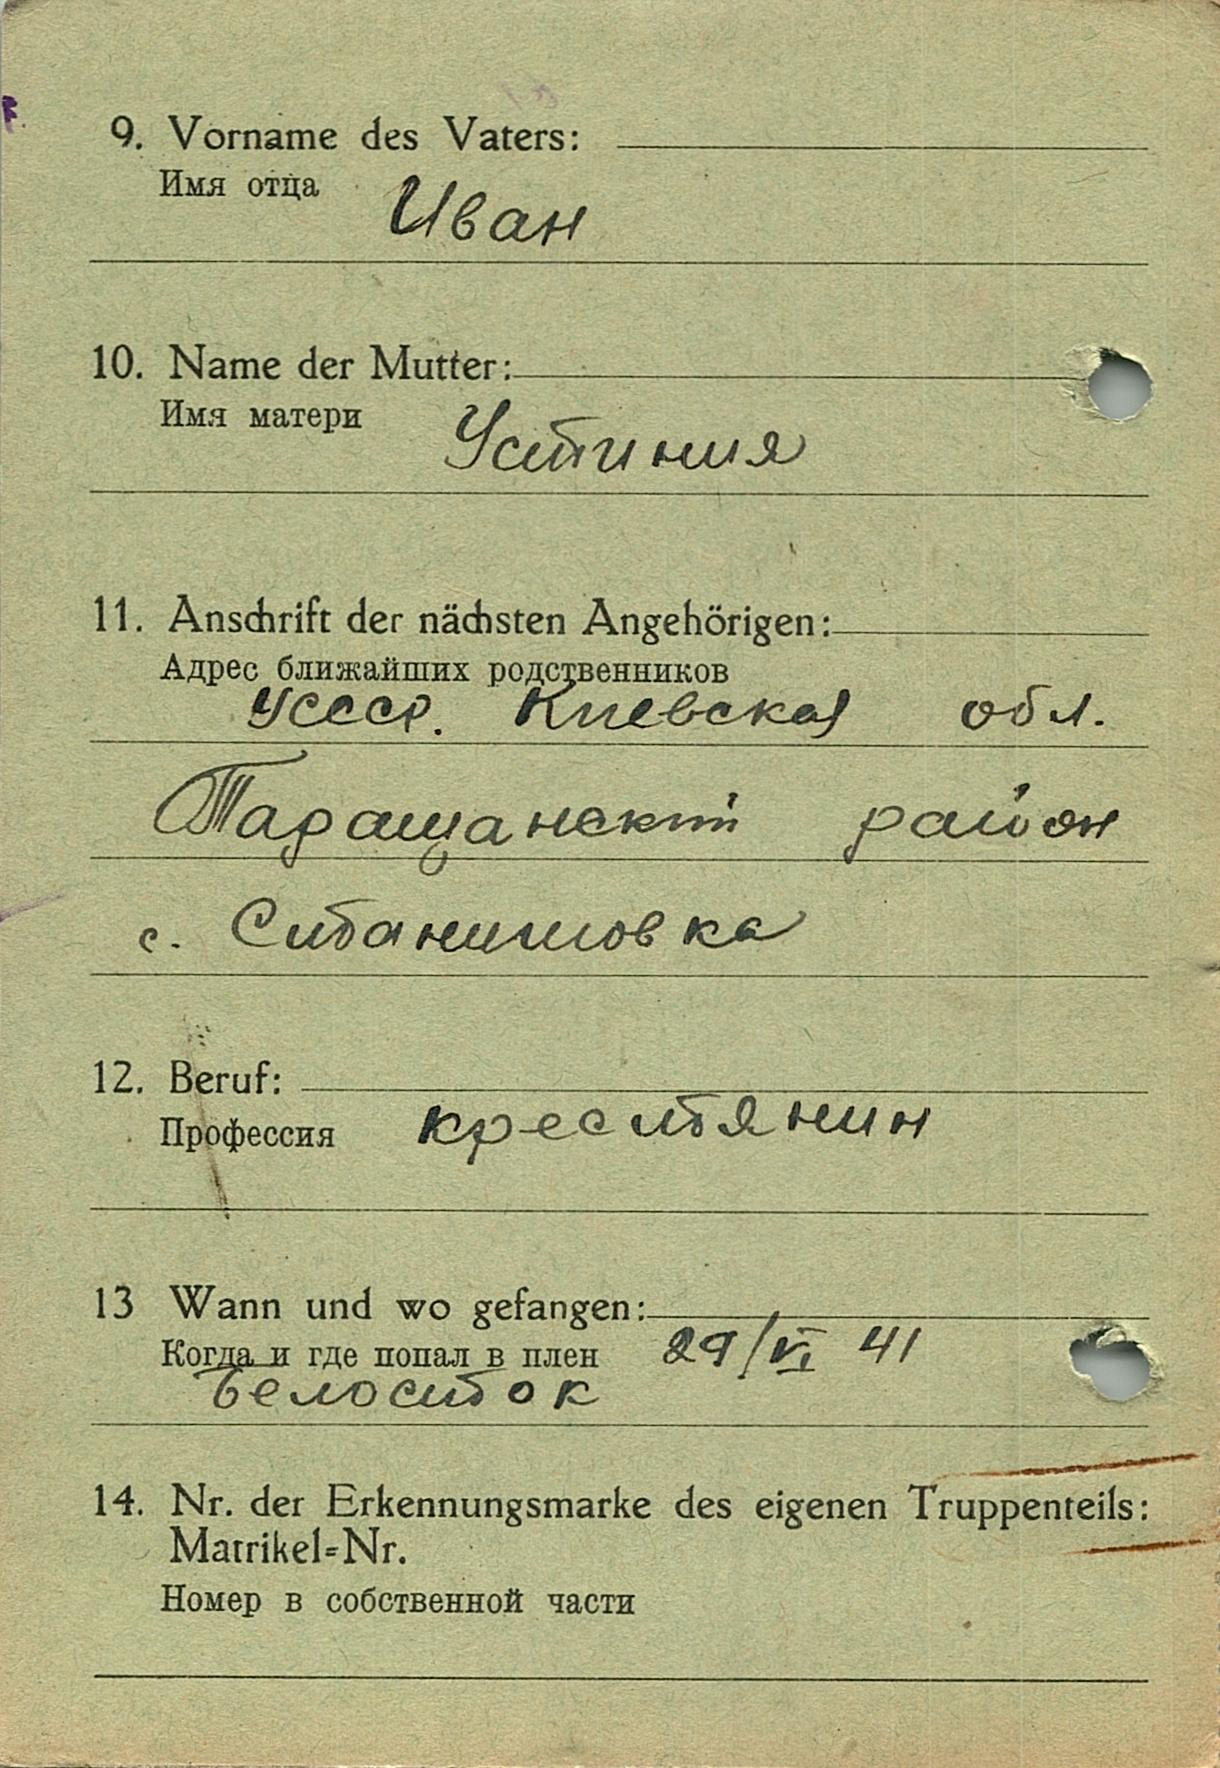 9. Vorname des Vaters:
Имя отца
Иван
10. Name der Mutter:
Имя матери
Устиния
11. Anschrift der nächsten Angehörigen:
Адрес ближайших родственников
УССР. Киевская обл.
Таращанский район
с. Станишовка
12. Beruf:
Профессия крестьянин
13 Wann und wo gefangen:
Когда и где попал в плен 29/VI 41
Белосток
14. Nr. der Erkennungsmarke des eigenen Truppenteils:
Matrikel=Nr.
Номер в собственной части